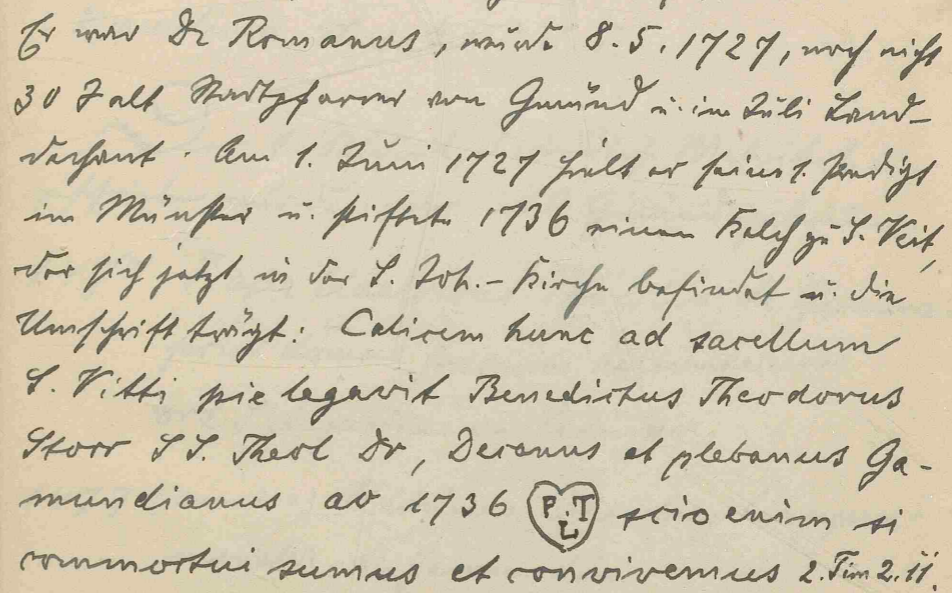 Er war Dr Romanus, wurde 8.5.1727, noch nicht
30 J alt Stadtpfarrer von Gmünd u. im Juli Land-
dechant. Am 1. Juni 1727 hielt er seine 1. Predigt
im Münster u. stiftete 1736 einen Kelch zu S. Veit,
der sich jetzt in der S. Joh.-Kirche befindet u. die
Umschrift trägt: Calicem hunc ad sacellum
S. Vitti pie legavit Benedictus Theodorus
Storr SS. Theol Dr, Decanus et plebanus Ga-
mundianus ao 1736 P.T L scio enim si
commortui sumus et convivemus 2. Tim 2.11.